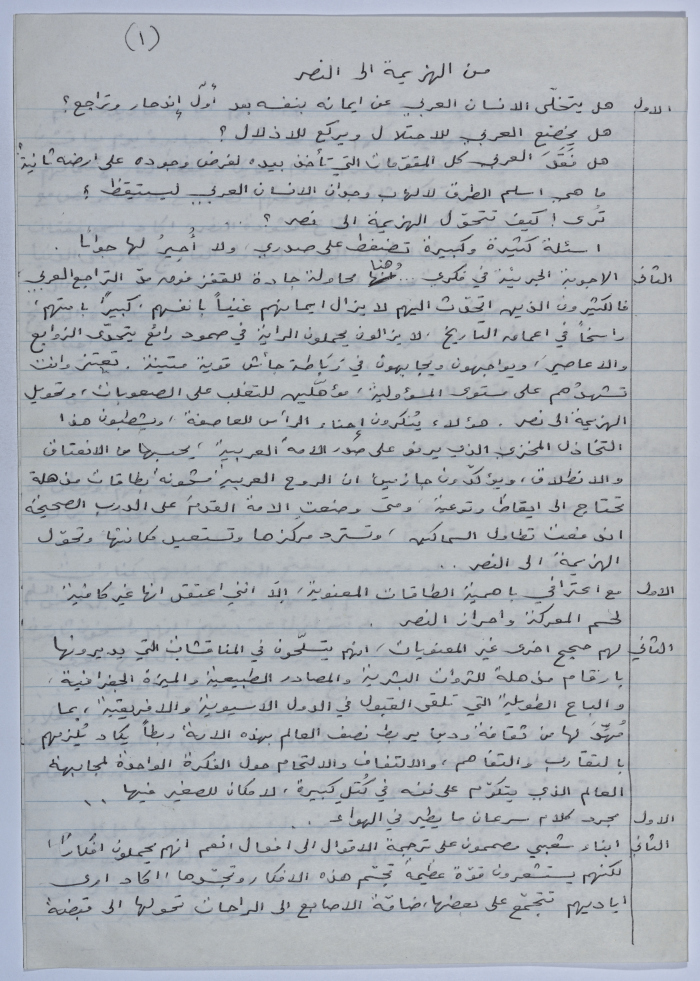 (١)
من الهزيمة الى النصر
الاول هل يتخلّى الانسان العربي عن ايمانه بنفسه بعد أوّل إندحار وتراجع ؟
هل يخضع العربي للاحتلال ويركع للاذلال ؟
هل فَقَدَ العربي كل المقوّمات التي تأخذ بيده لفرض وجوده على ارضه ثانيةً
ما هي اسلم الطرق لالهاب وجدان الانسان العربي ليستيقظ ؟
تُرى ! كيف تتحوّل الهزيمة الى نصر ؟ . . .
اسئلة كثيرة وكبيرة تضغط على صدري ولا أُحيرُ لها جواباً .
الثاني الاجوبة الجريئة في فكري ... وهُنا محاولة جادة للقفز فوق التراجع العربي
فالكثيرون الذين اتحدّث اليهم لا يزال ايمانهم غنياً بانفسهم ، كبيراً بامتهم ،
راسخاً في اعماق التاريخ ، لا يزالون يحملون الراية في صمود رائع يتحدّى الزوابع
والاعاصير ، ويواجهون ويجابهون في رَبَاطة جأش قوية متينة . تعتز وانت
تشهدُهم على مستوى المسؤولية ، مؤهّلين للتغلب على الصعوبات ، وتحويل
الهزيمة الى نصر . هؤلاء يُنكرون إحناء الرأس للعاصفة ، ويشطبون هذا
التخاذل المخزي الذي يربض على صدر الامة العربية ، يحبسها من الانعتاق
والانطلاق ، ويؤكّدون جازمين ان الروح العربية مشحونة بطاقات مذهلة
تحتاج الى ايقاظ وتوعية ومتى وضعت الامة القدم على الدرب الصحيحة
اندفعت تطاول السماكين ، وتسترد مركزها وتستعيد مكانتها وتحوّل
الهزيمة الى النصر . .
الاول مع اعترافي باهمية الطاقات المعنوية ، إلّا انني اعتقد انها غير كافية
لحسم المعركة واحراز النصر .
الثاني لهم حجج اخرى غير المعنويات ، انهم يتسلّحون في المناقشات التي يديرونها
بارقام مذهلة للثروات البشرية والمصادر الطبيعية والميزة الجغرافية ،
والباع الطويلة التي تلقى القبول في الدول الاسيوية والافريقية ، بما
لها من ثقافة ودين يربط نصف العالم بهذه الامة ربطاً يكاد يُلزمهم
بالتقارب والتفاهم ، والالتفاف والالتحام حول الفكرة الواحدة لمجابهة
العالم الذي يتكوّم على نفسه في كُتل كبيرة ، لا مكان للصغير فيها . .
الاول مجرد كلام سرعان ما يطير في الهواء . .
الثاني ابناء شعبي مصممون على ترجمة الاقوال الى افعال انعم انهم يحملون افكاراً ،
لكنهم يستشعرون قوّة عظيمة تجسّم هذه الافكار وتجسّدها ! اكاد ارى
اياديهم تتجمّع على بعضها ، ضامّة الاصابع الى الراحات تحولها الى قبضة